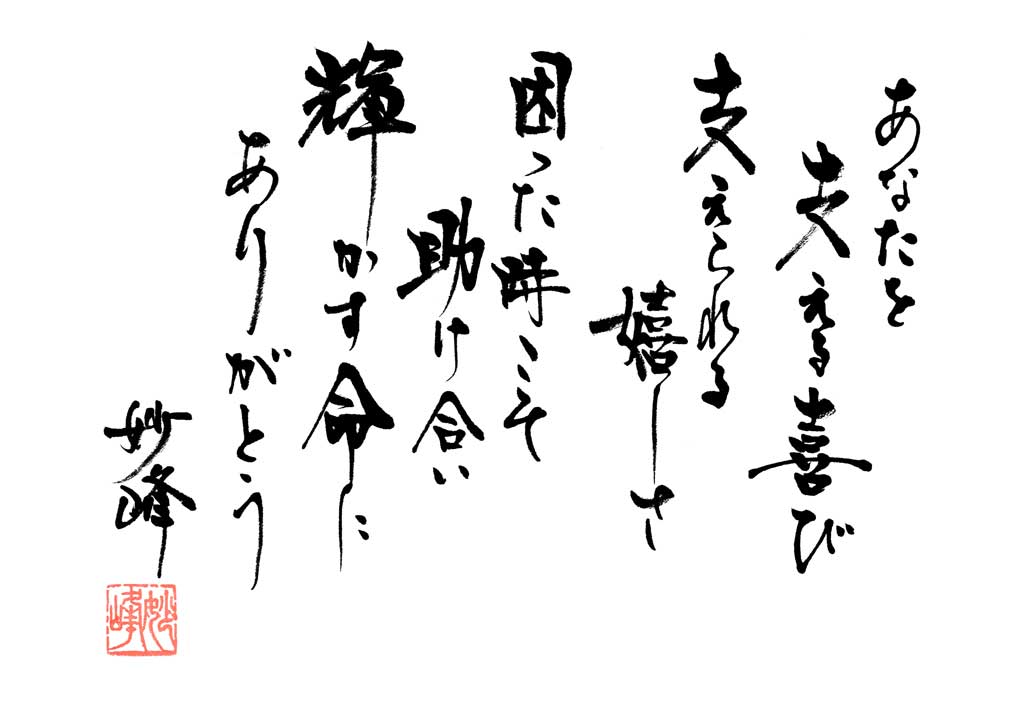 あなたを
支える喜び
支えられる
嬉しさ
困った時こそ
助け合い
輝かす命に
ありがとう
妙峰
妙峰